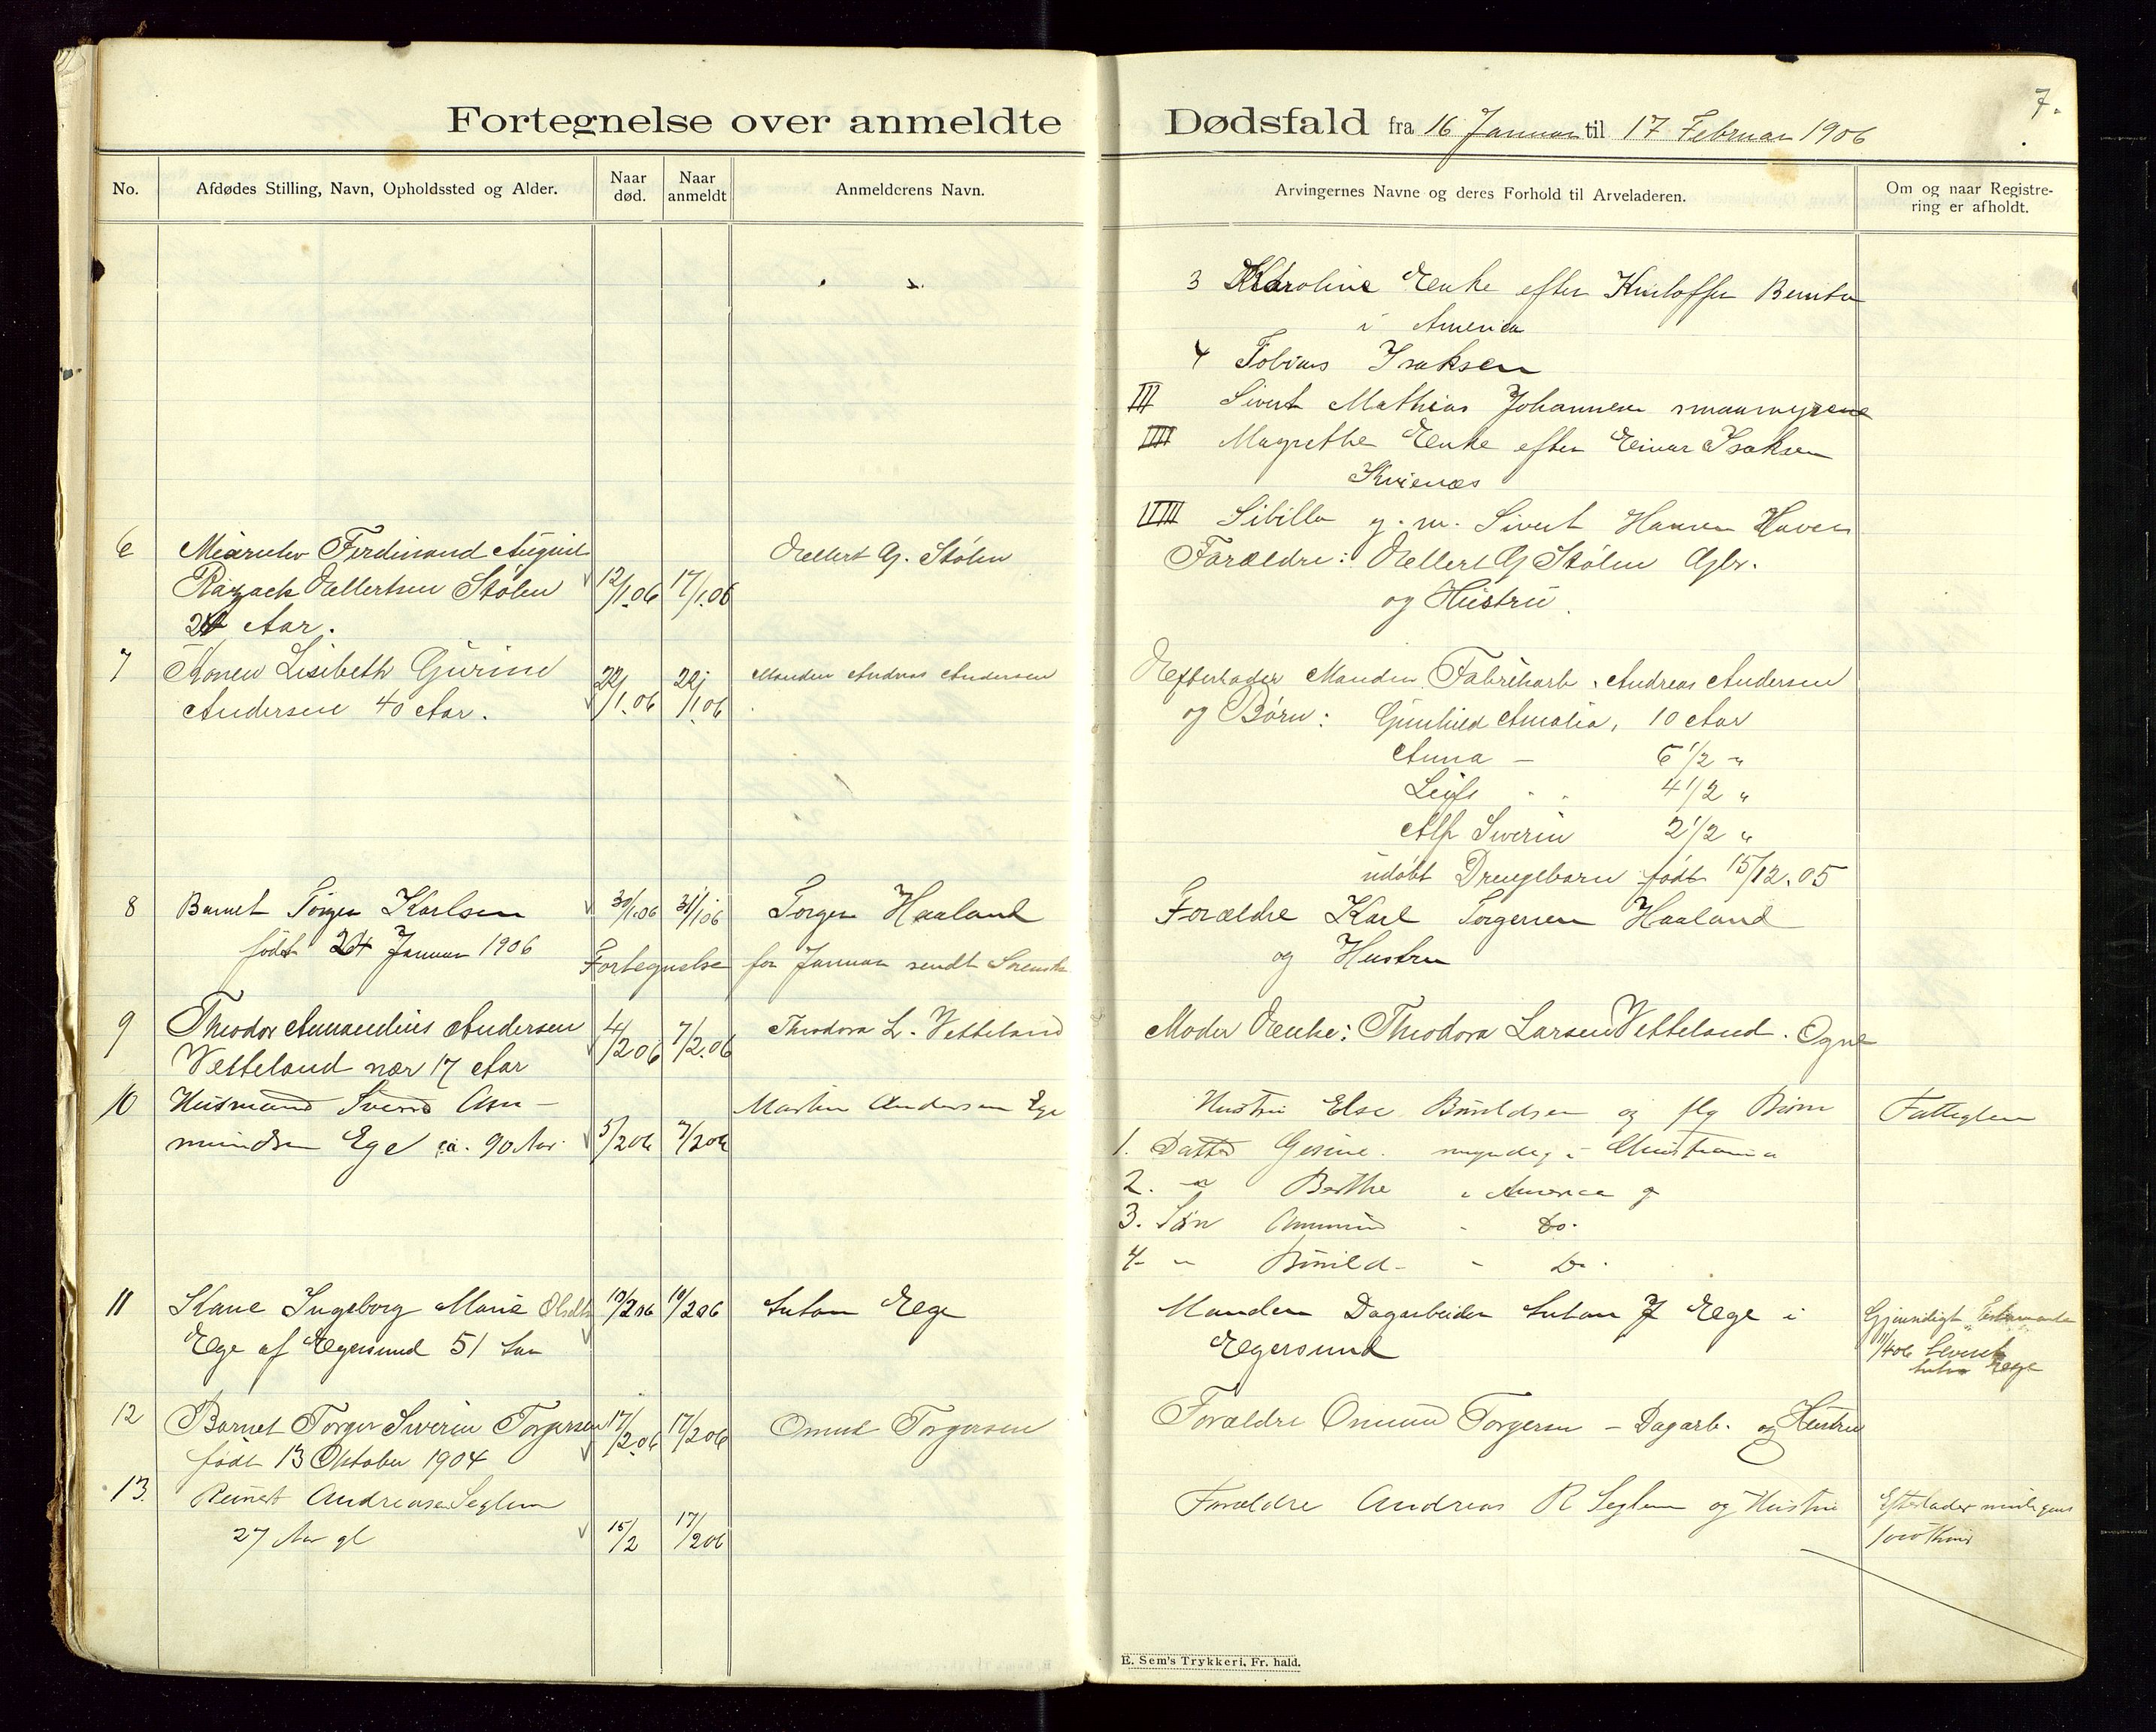 Fortegnelse over anmeldte Dødsfald fra 16 Januar til 17 Februar 1906
7.
No.
Afdødes Stilling, Navn, Opholdssted og Alder.
Naar død.
Naar anmeldt
Anmelderens Navn.
Arvingernes Navne og deres Forhold til Arveladeren.
Om og naar Registre-
ring er afholdt.
3 Karoline Enke efter
i America
4 Tobias Isaksen
III Sivert Mathias Johannesen
IIII Magrethe Enke efter Einar Isaksen
Kvienæs
IIIII Sibilla g. m. Sivert Hansen Haven
6
Ferdinand August
Ellertsen Stølen
Aar.
12/1.06
17/1.06
Ellert G. Stølen
Forældre: Ellert G Stølen Gbr.
og Hustru.
7
Konen Lisebeth Gurine
Andersen 40 Aar.
22/1.06
22/1.06
Manden Andreas Andersen
Efterlader Manden Fabrikarb. Andreas Andersen
og Børn: Gunhild Amalia, 10 Aar
Anna - 6 1/2 "
Leif 4 1/2 "
Alf Severin 2 1/2 "
udøbt Drengebarn født 15/12.05
8
Barnet Torger Karlsen
født 24 Januar 1906
30/1.06
31/1.06
Torger Haaland
Forældre Karl Torgersen Haaland
og Hustru
Fortegnelse for Januar sendt
9
Theodor Amandius Andersen
Vetteland nær 17 Aar
4/2 06
7/2.06
Theodora L. Vetteland
Moder Enke: Theodora Larsen Vetteland. Ogne
10
Husmand Svend Asm-
undsen Ege ca. 90 Aar
5/2 06
7/2 06
Martin Andersen Ege
Hustru Else Bøvildsen og flg Børn
Fattiglem
1. Datter Gesine. myndig i Christiania
2. " Berthe i America g
3. Søn do.
4. " D.
11
Kone Ingeborg Marie
Ege af Egersund 51 Aar
10/2 06
10/2 06
Anton Ege
Manden Dagarbeider Anton J Ege i
Egersund
Gjensidigt Testamente
11/4 06
Anton Ege
12
Barnet Torger Severin Torgersen
født 13 Oktober 1904
17/2.06
17/2 06
Omund Torgersen
Forældre Omund Torgersen - Dagarb. og Hustru
13.
Reinert Andreasen Seglem
27 Aar gl
15/2
17/2 06
Forældre Andreas R Seglem og Hustru
Efterlader
E. Sem's Trykkeri, Fr. hald.